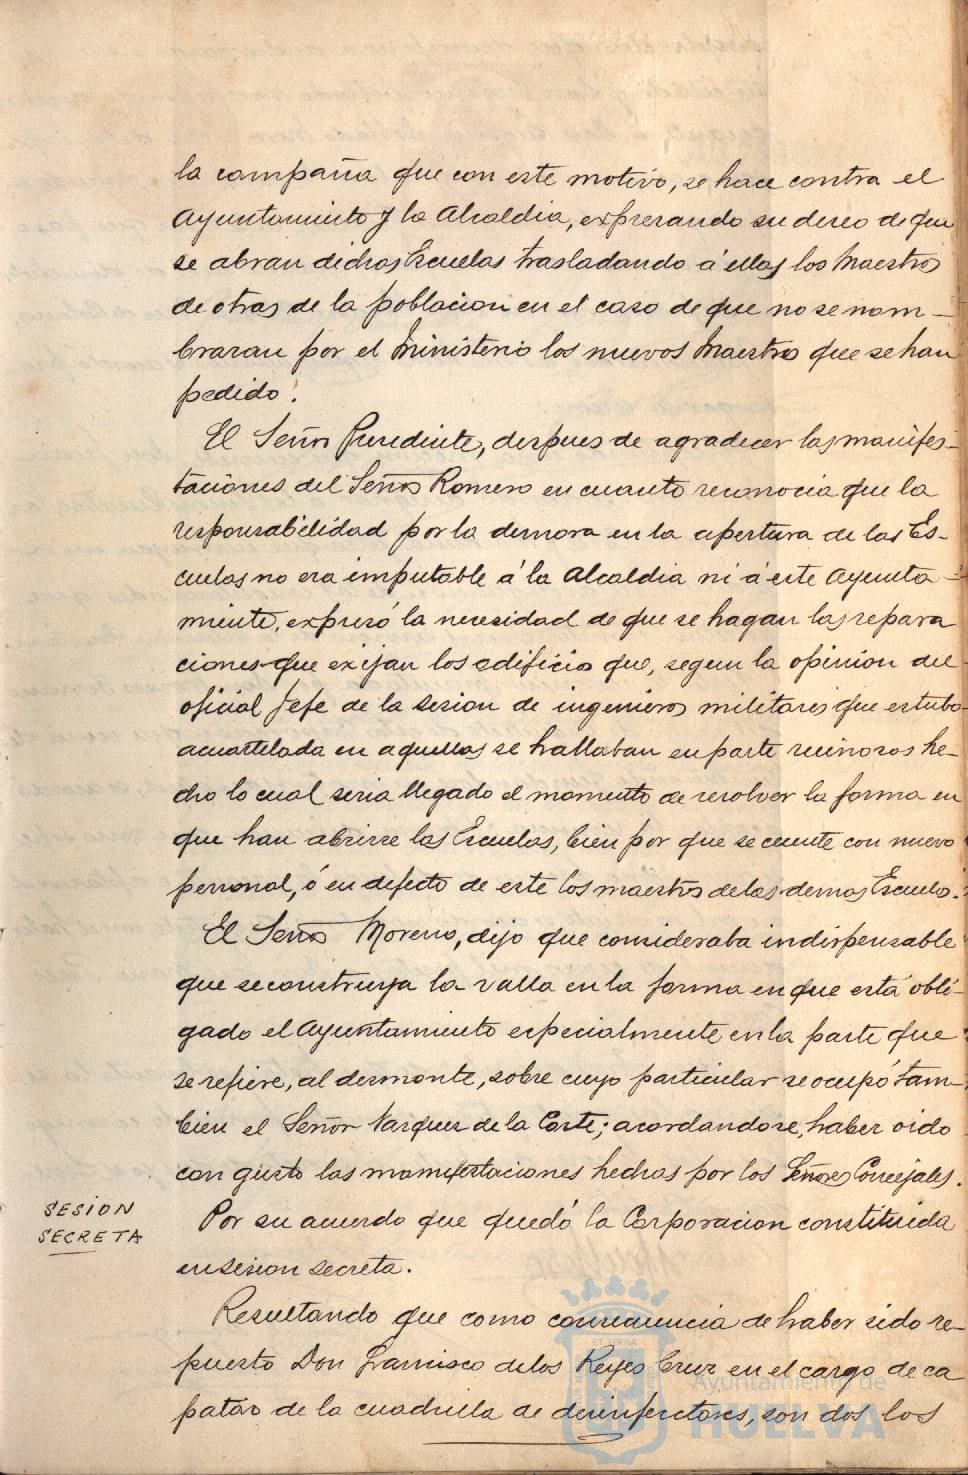 la campaña que con este motivo, se hace contra el
Ayuntamiento y la Alcaldia, expresando su deseo de que
se abran dichas Escuelas trasladando á ellas los Maestros
de otras de la poblacion en el caso de que no se nom-
braran por el Ministerio los nuevos Maestros que se han
pedido.
El Señor Presidente, despues de agradecer las manifes-
taciones del Señor Romero en cuanto reconocia que la
responsabilidad por la demora en la apertura de las Es-
cuelas no era imputable á la Alcaldia ni á este Ayunta-
miento, expresó la necesidad de que se hagan las repara
ciones que exijan los edificios que, segun la opinion del
oficial Jefe de la sesion de ingenieros militares que estubo
acuartelada en aquellas se hallaban en parte ruinosos he-
cho lo cual seria llegado el momento de resolver la forma en
que han abrirse las Escuelas, bien por que se cuente con nuevo
personal, ó en defecto de este los maestros de las demas Escuelas.
El Señor Moreno, dijo que consideraba indispensable
que se construya la valla en la forma en que está obli-
gado el Ayuntamiento especialmente en la parte que
se refiere, al desmonte, sobre cuyo particular se ocupó tam-
bien el Señor Vazquez de la Corte; acordandose, haber oido
con gusto las manifestaciones hechas por los Señores Concejales.
SESION
SECRETA
Por su acuerdo que quedó la Corporacion constituida
en sesion secreta.
Resultando que como consecuencia de haber sido re-
puesto Don Francisco de los Reyes Cruz en el cargo de ca
pataz de la cuadrilla de desinfectores, son dos los
Ayuntamiento de
HUELVA